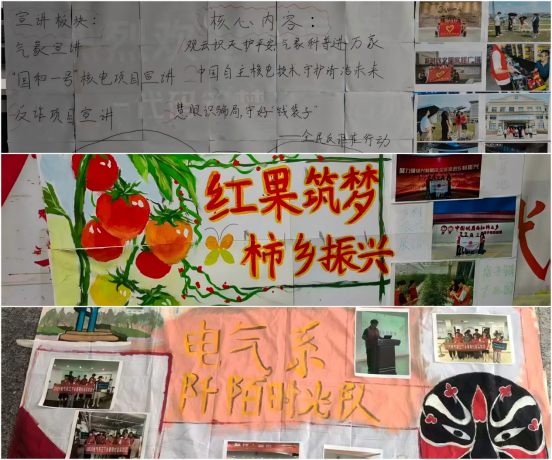 宣讲板块：
核心内容：
气象宣讲
观云识天护平安，气象科普进万家
"国和一号"核电项目宣讲
中国自主核电技术守护能源未来
反诈项目宣讲
慧眼识骗局，守好"钱袋子"
——全民反诈在行动
红果筑梦
柿乡振兴
电气系
阡陌时光队